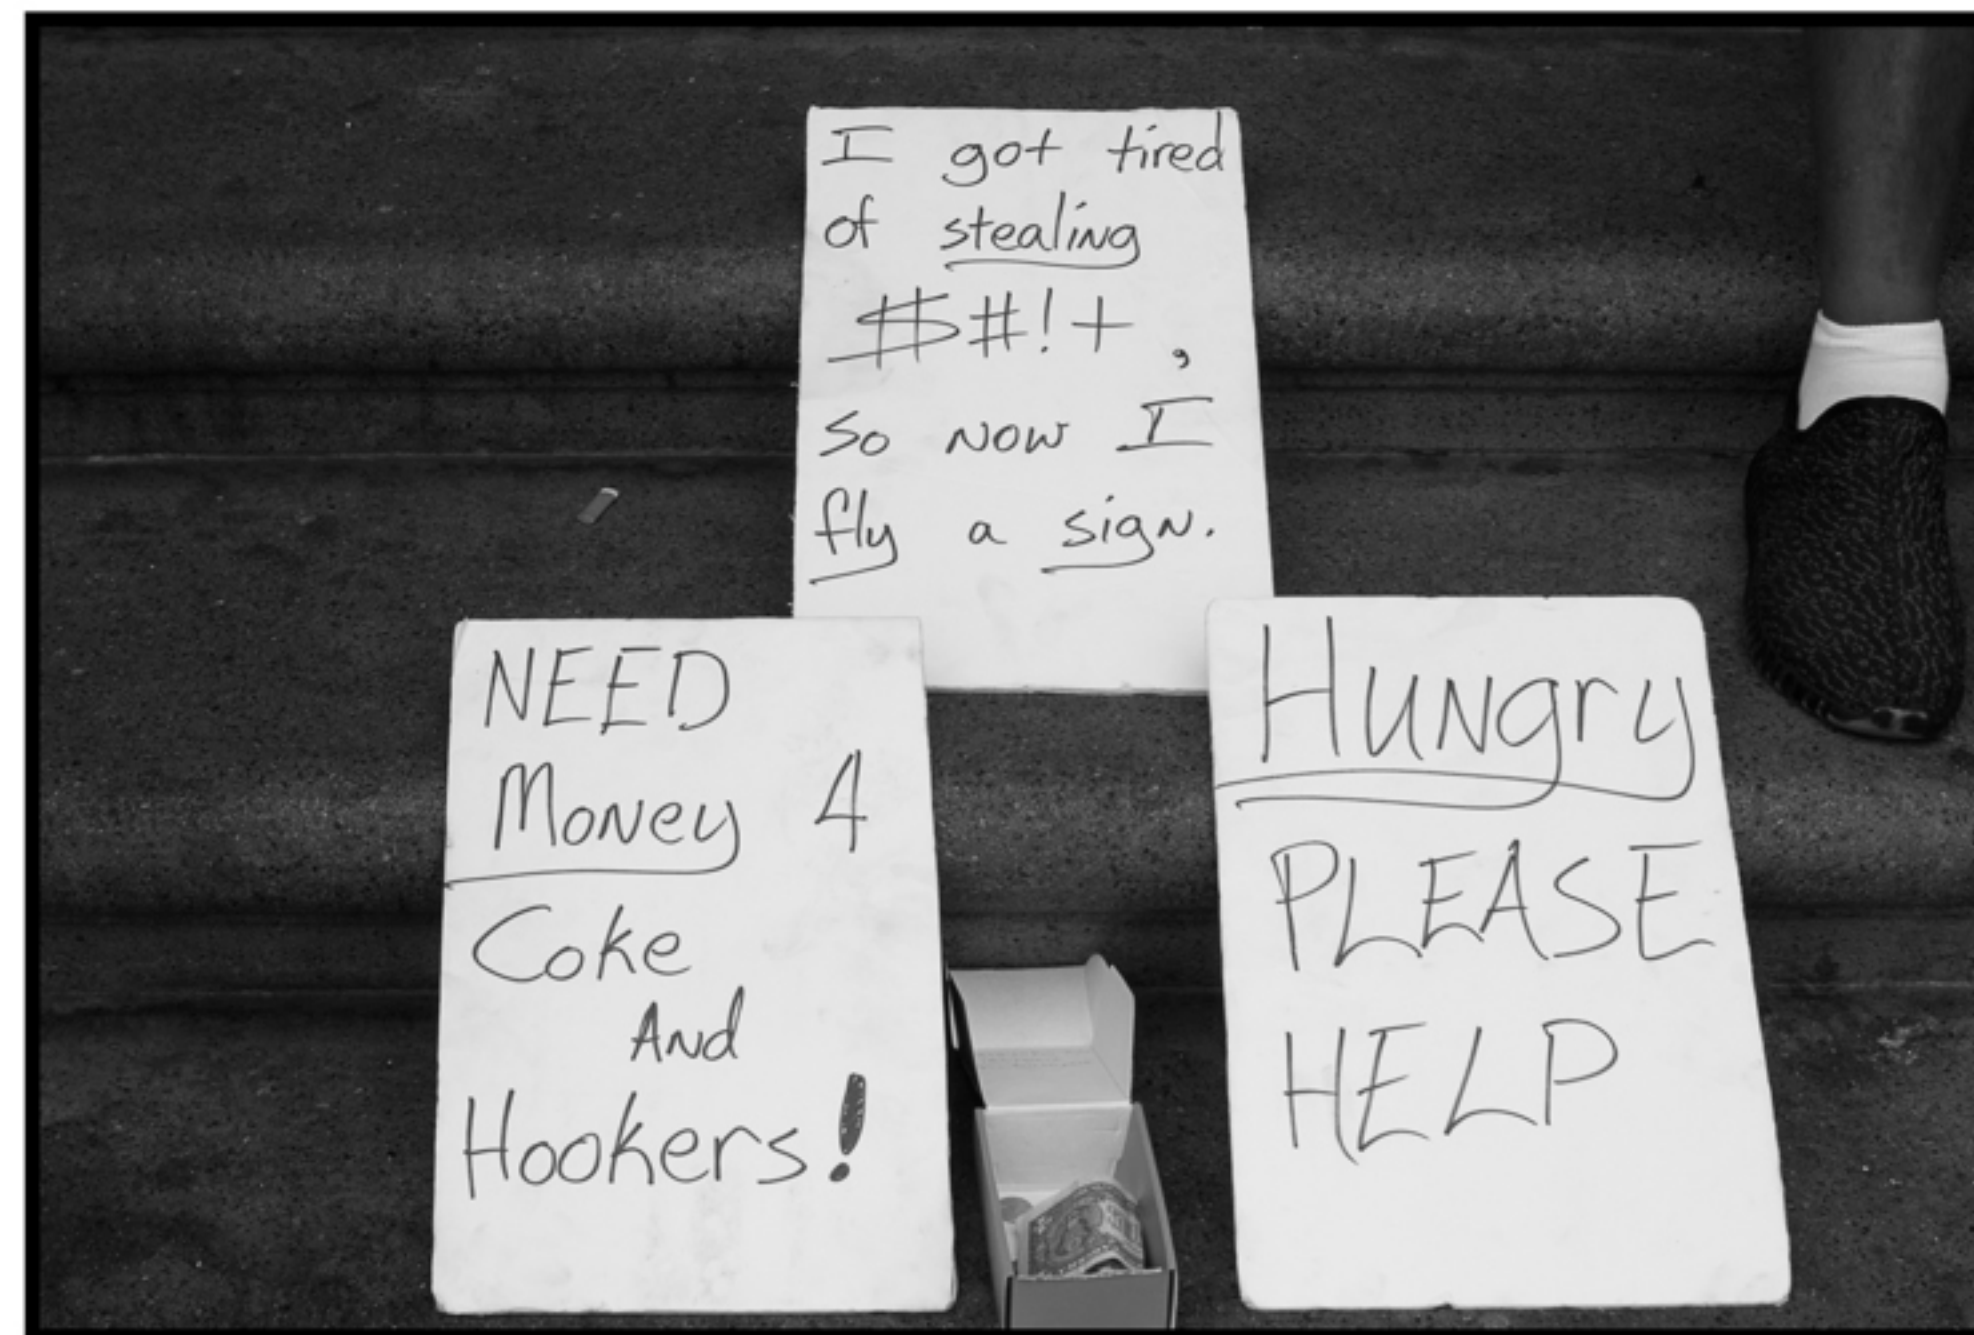 I got tired
of stealing
$#!+,
so now I
fly a sign.
NEED
Money 4
Coke
And
Hookers!
Hungry
PLEASE
HELP